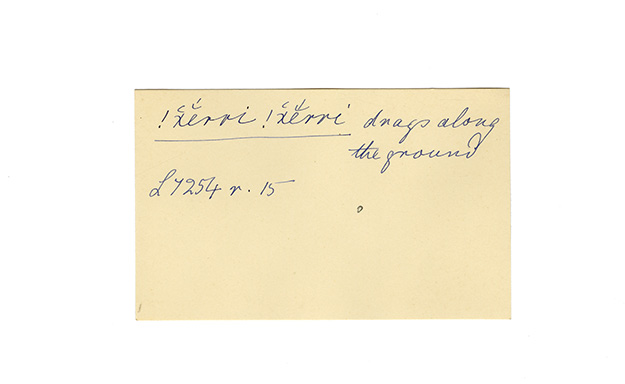 !k̆érri !k̆érri drags along
the ground
L 7254 r. 15